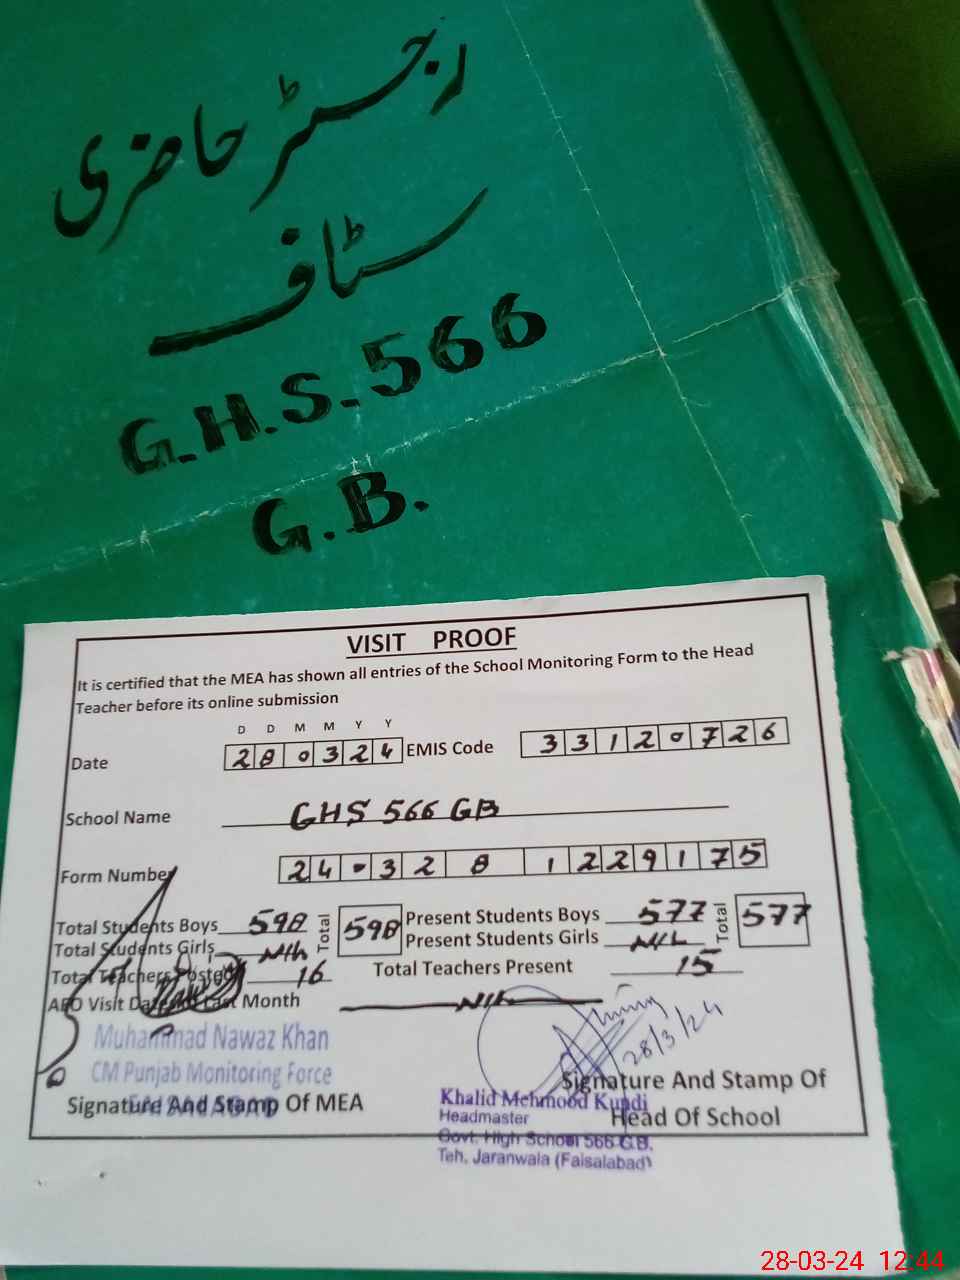 رجسٹر حاضری
سٹاف
G.H.S.566
G.B.
VISIT PROOF
It is certified that the MEA has shown all entries of the School Monitoring Form to the Head
Teacher before its online submission
D D M M Y Y
Date 28 03 24 EMIS Code 33120726
School Name GHS 566 GB
Form Number 24-328 1229175
Total Students Boys 598 Total 598 Present Students Boys 577 Total 577
Total Students Girls Nil Present Students Girls NIL
Total Teachers Posted 16 Total Teachers Present 15
AEO Visit Date of Last Month Nil
28/3/24
Muhammad Nawaz Khan
CM Punjab Monitoring Force
Signature And Stamp Of MEA
Signature And Stamp Of
Head Of School
Khalid Mehmood Kundi
Headmaster
Govt. High School 566 G.B.
Teh. Jaranwala (Faisalabad)
28-03-24 12:44